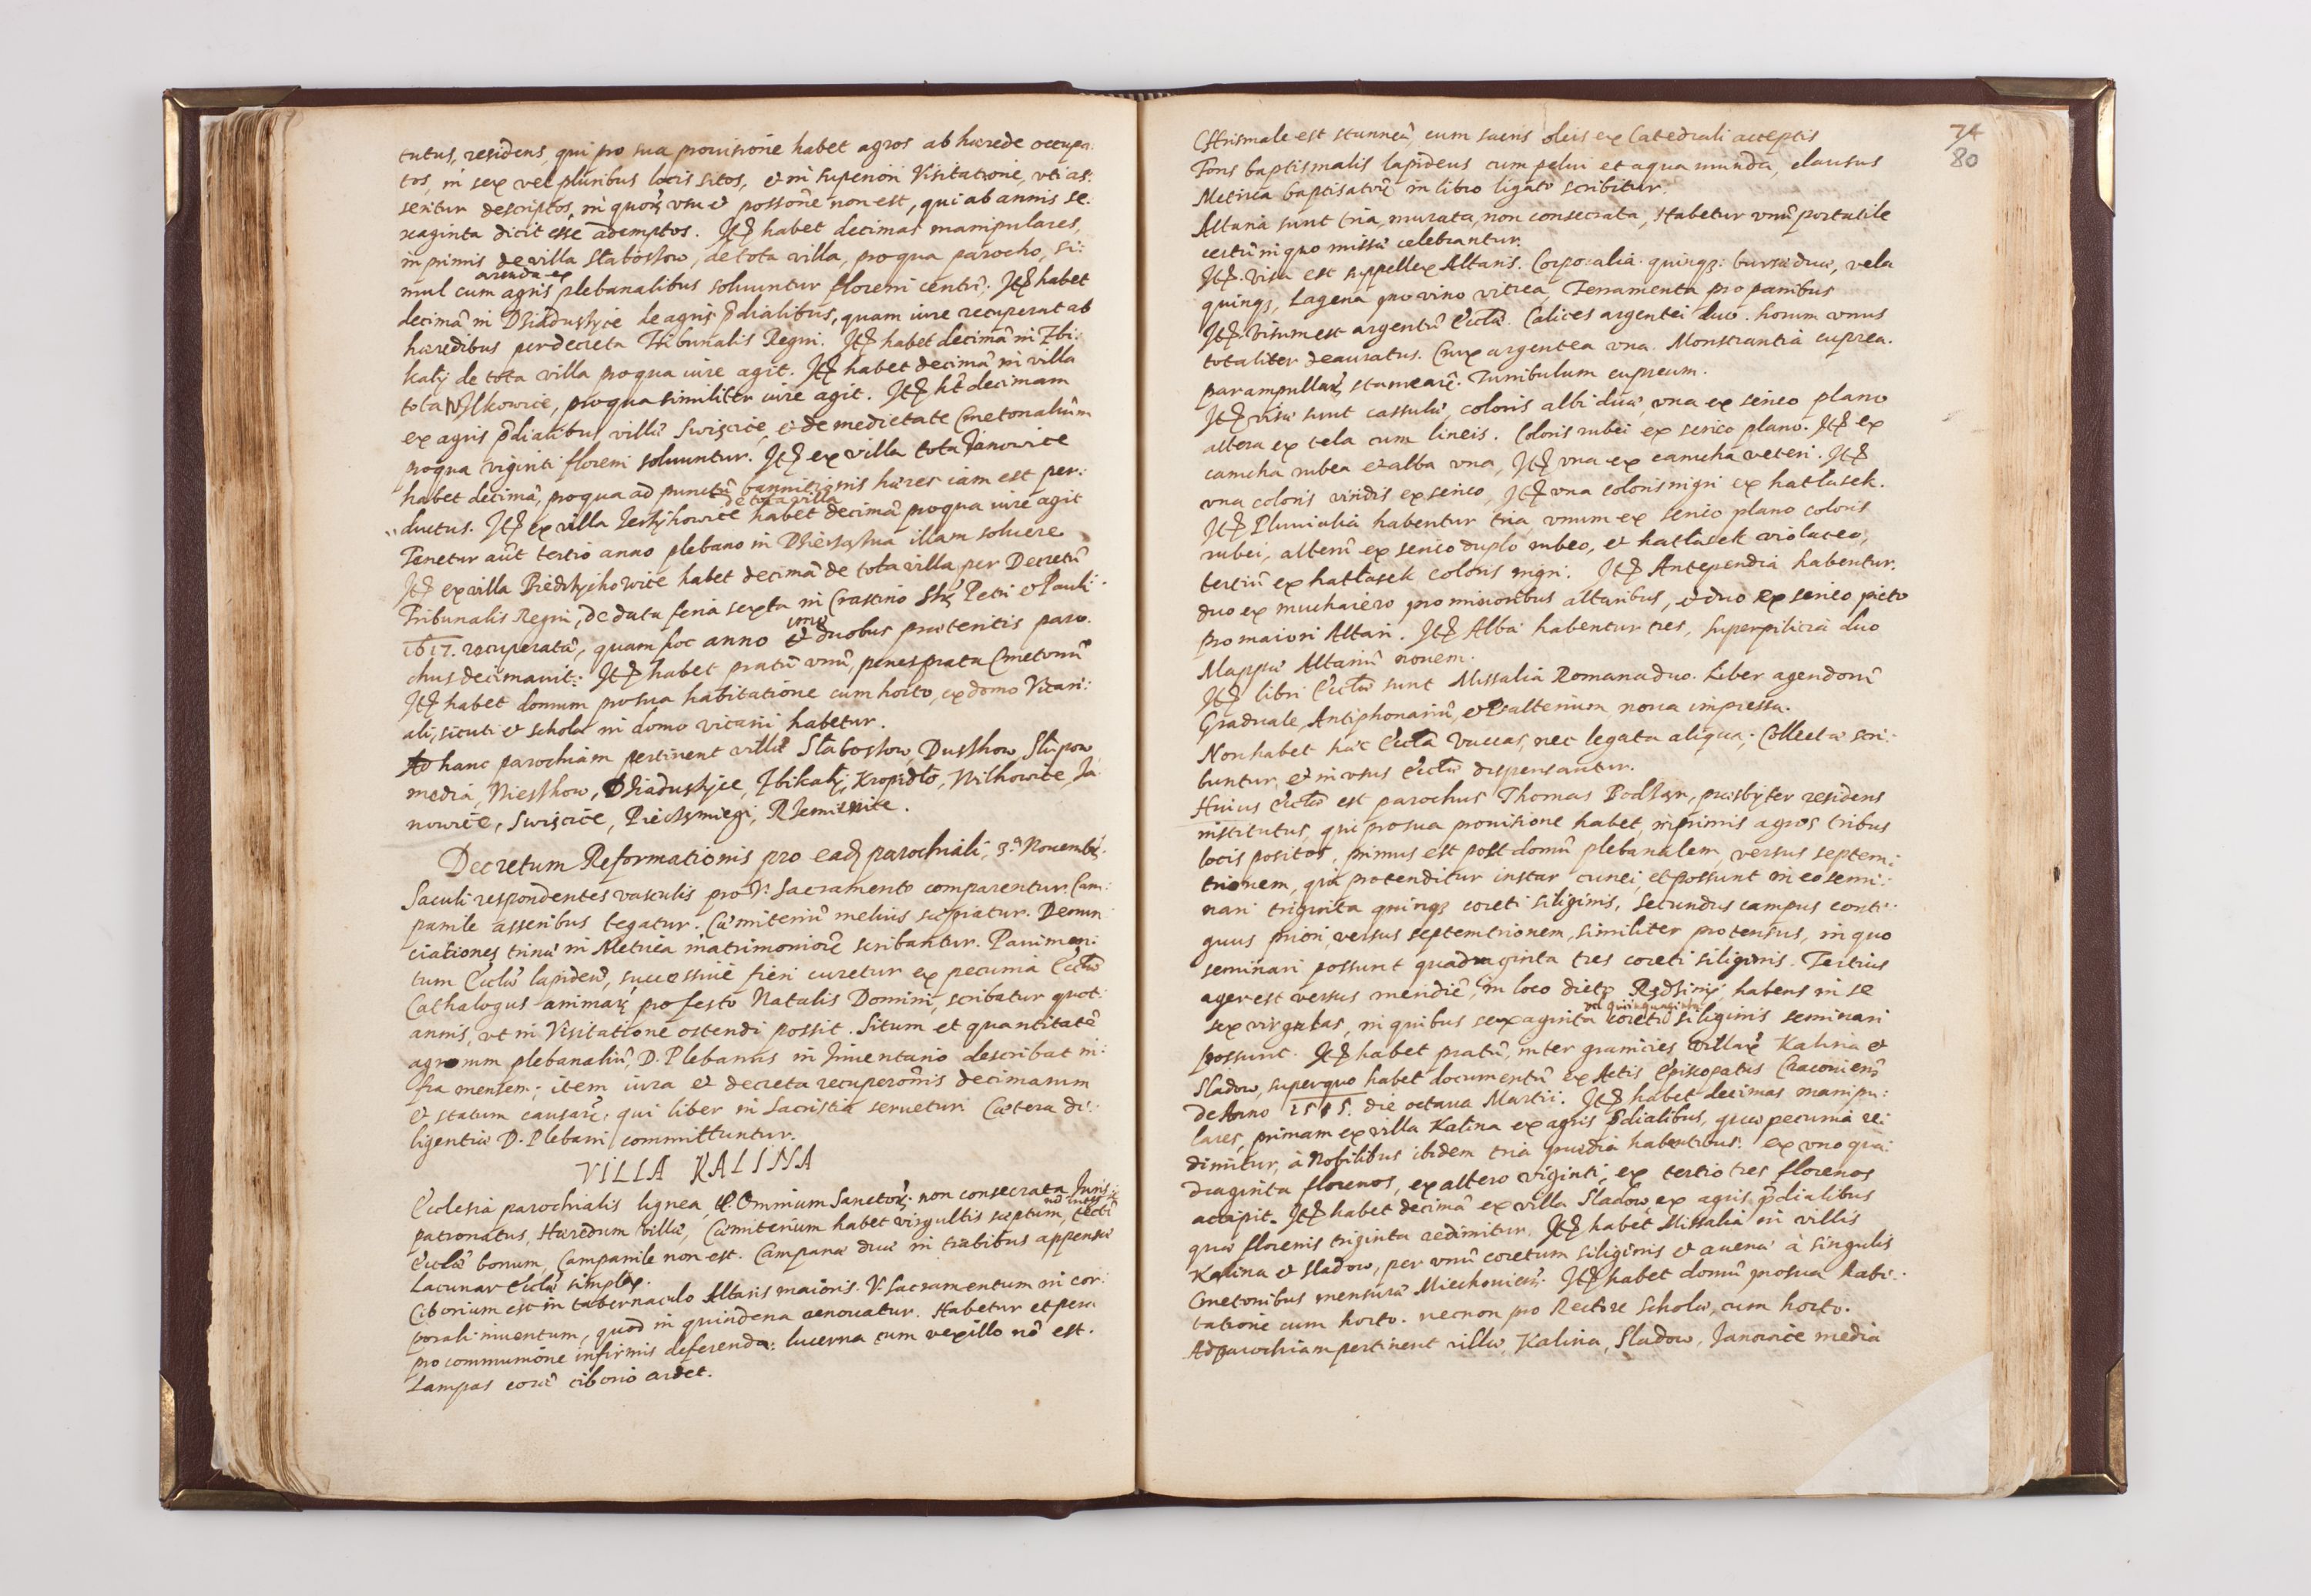 tutus, residens, qui pro sua prouisione habet agros ab hærede occupa:
tos, in sex vel pluribus locis sitos, et in superiori Visitatione, vti as:
seritur descriptos, in quorꝝ vsu et possoñe non est, qui ab annis se:
xaginta dicit esse ademptos. Itꝫ habet decimas manipulares,
inprimis de villa Slaboszow, de tota villa, pro qua parocho, si:
arenda ex
mul cum agris plebanalibus soluuntur floreni centũ. Itꝫ habet
decimã in Dziaduszyce de agris p̃dialibus, quam iure recuperat ab
hæredibus per decreta Tribunalis Regni. Itꝫ habet decimã in Zbi:
kaly de tota villa pro qua iure agit. Itꝫ habet decimã in villa
tota Nilkowice, pro qua similiter iure agit. Itꝫ ht̃ decimam
ex agris p̃dialibus villæ Swięcice, et de medietate Cmetonaliũm
pro qua viginti floreni soluuntur. Itꝫ ex villa tota Janowice
habet decimã, pro qua ad punctũ bannitionis hæres iam est per:
de tota villa
ductus. Itꝫ ex villa habet decimã pro qua iure agit
Tenetur aũt tertio anno plebano in illam soluere
Itꝫ ex villa habet decimã de tota villa, per Decretũ
Tribunalis Regni, de data feria sexta in Crastino Petri et Pauli
1617. recuperatã, quam hoc anno et duobus præteritis paro:
chus decimauit. Itꝫ habet pratũ vnũ, penes prata Cmetonũ
Itꝫ habet domum pro sua habitatione cum horto, ex domo Vicari:
ali, sicuti et schola in domo vicarii habetur.
Ad hanc parochiam pertinent villæ Slaboszow, Buszkow, Slupow
media, Nieszkow, Dziaduszyce, Zbikaly, Kropidlo, Nilkowice, Ja:
nowice, Swięcice, Rzemiennice.
Decretum Reformationis pro eadꝫ parochiali, 3.ª Nouembr.
Saculi respondentes vasculis pro V. Sacramento comparentur. Cam:
panile asseribus tegatur. Cæmiteriũ melius sæpiatur. Denun
ciationes trinæ in Metrica matrimoniorũ scribantur. Pauimen:
tum Eccl̃æ lapideũ, successiuè fieri curetur ex pecunia Eccl̃æ
Cathalogus animarꝝ pro festo Natalis Domini, scribatur quot:
annis, vt in Visitatione ostendi possit. Situm et quantitatẽ
agrorum plebanaliũ, D. Plebanus in Inuentario describat in:
fra mensem; item iura et decreta recuperoñis decimarum
et statum causarũ, qui liber in Sacristia seruetur. Cætera di:
ligentiæ D. Plebani committuntur.
VILLA KALINA
Ecclesia parochialis lignea, tt. Omnium Sanctorꝝ, non consecrata, Juris
patronatus, Hæredum villæ, Cæmiterium habet virgultis sæptum, tectũ
Eccl̃æ bonum, Campanile non est. Campanæ duæ in trabibus appensæ
Lacunar Eccl̃æ simplex.
Ciborium est in tabernaculo Altaris maioris. V. Sacramentum in cor:
porali inuentum, quod in quindena renouatur. Habetur et pera
pro communione infirmis deferenda: lucerna cum vexillo nõ est.
Lampas corã ciborio ardet.
74
80
Chrismale est stanneũ, cum sacris oleis ex Catedrali acceptis
Fons baptismalis lapideus cum pelui et aqua munda, clausus
Metrica baptisatorũ in libro ligato scribitur.
Altaria sunt tria, murata, non consecrata, Habetur vnũ portatile
certũ in quo missæ celebrantur.
Itꝫ. Visa est suppellex Altaris. Corporalia quinqꝫ: bursæ duæ, vela
quinqꝫ, Lagena pro vino vitrea, Ferramenta pro panibus
Itꝫ. Visum est argentũ Eccl̃æ. Calices argentei duo. horum vnus
totaliter deauratus. Crux argentea vna. Monstrantia cuprea.
par ampullarꝝ stannearũ. Turribulum cupreum.
Itꝫ visæ sunt cassulæ, coloris albi duæ, vna ex serico plano
altera ex tela cum lineis. Coloris rubei ex serico plano. Itꝫ ex
camcha rubea et alba vna, Itꝫ vna ex camcha veteri. Itꝫ
vna coloris viridis ex serico, Itꝫ vna coloris nigri ex hatłasek.
Itꝫ Pluuialia habentur tria, vnum ex serico plano coloris
rubei, alterũ ex serico duplo rubeo, et hatłasek violaceo,
tertiũ ex hatłasek coloris nigri. Itꝫ Antependia habentur.
duo ex muchaiero pro minoribus altaribus, et duo ex serico picto
pro maiori Altari. Itꝫ Albæ habentur tres, superpilicia duo
Mappæ Altariũ nouem.
Itꝫ libri Eccl̃æ sunt Missalia Romana duo. Liber agendorũ
Graduale, Antiphonariũ, et Psalterium noua impressa.
Non habet hæc Eccl̃a vaccas, nec legata aliqua; Collectæ scri:
buntur, et in vsus Eccl̃æ dispensantur.
Huius Eccl̃æ est parochus Thomas presbyter residens
institutus, qui pro sua prouisione habet, inprimis agros tribus
locis positos, primus est post domũ plebanalem, versus septem:
trionem, qui protenditur instar cunei, et possunt in eo semi:
nari triginta quinqꝫ coreti siliginis. Secundus campus conti:
guus priori, versus septemtrionem, similiter protensus, in quo
seminari possunt quadraginta tres coreti siliginis. Tertius
ager est versus meridiẽ, in loco dicto habens in se
vel quinquaginta
sex virgultas, in quibus sexaginta coreti siliginis seminari
possunt. Itꝫ habet pratũ, inter granicies villarũ Kalina et
Sladow, super quo habet documentũ ex Actis Episcopatus Cracouieñ
de Anno die octaua Martii. Itꝫ habet decimas manipu:
lares, primam ex villa Kalina ex agris p̃dialibus, quæ pecunia re:
dimitur, à Nobilibus ibidem tria prædia habentibus: ex vno qua:
draginta florenos, ex altero viginti, ex tertio tres florenos
accipit. Itꝫ habet decimã ex villa Sladow, ex agris p̃dialibus
quæ florenis triginta redimitur. Itꝫ habet Missalia in villis
Kalina et Sladow, per vnũ coretum siliginis et auenæ à singulis
Cmetonibus mensuræ Miechouieñ. Itꝫ habet domũ pro sua habi:
tatione cum horto. necnon pro Rectore scholæ, cum horto.
Ad parochiam pertinent villæ, Kalina, Sladow, Janowice media